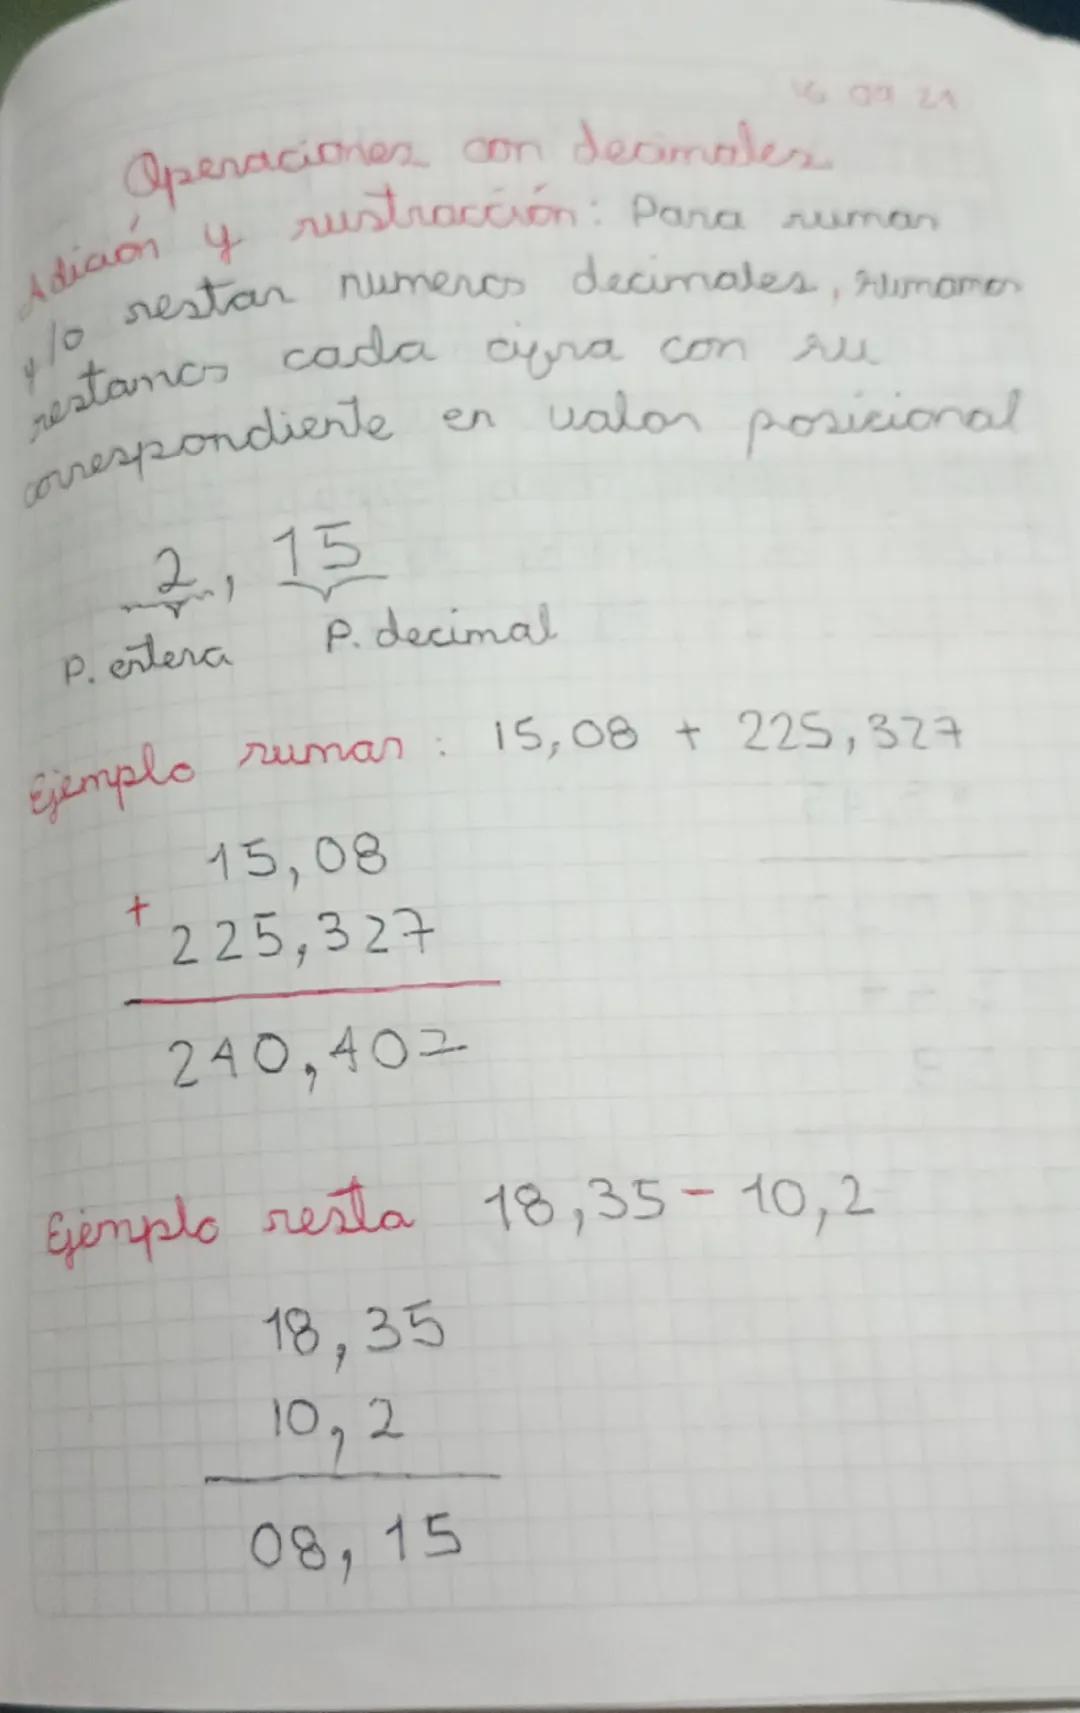 16 09 21
Operaciones con decimales
Adición y sustracción: Para sumar
y/o restar numeros decimales, sumamos
restamos cada cifra con su
correspondiente en valor posicional
2, 15
P. entera P. decimal
Ejemplo sumar: 15,08 + 225,327
15,08
+
225,327
240,407
Ejemplo resta 18,35 - 10,2
18,35
10,2
08,15